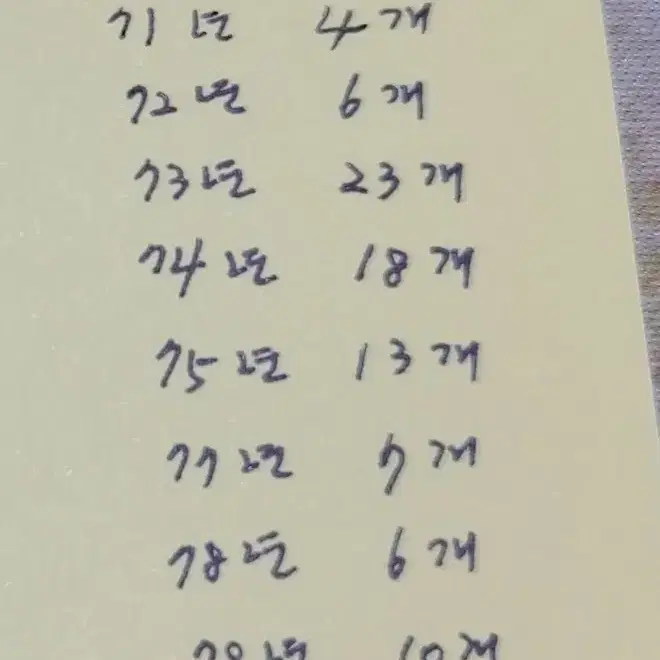 71년 4개
72년 6개
73년 23개
74년 18개
75년 13개
77년 7개
78년 6개